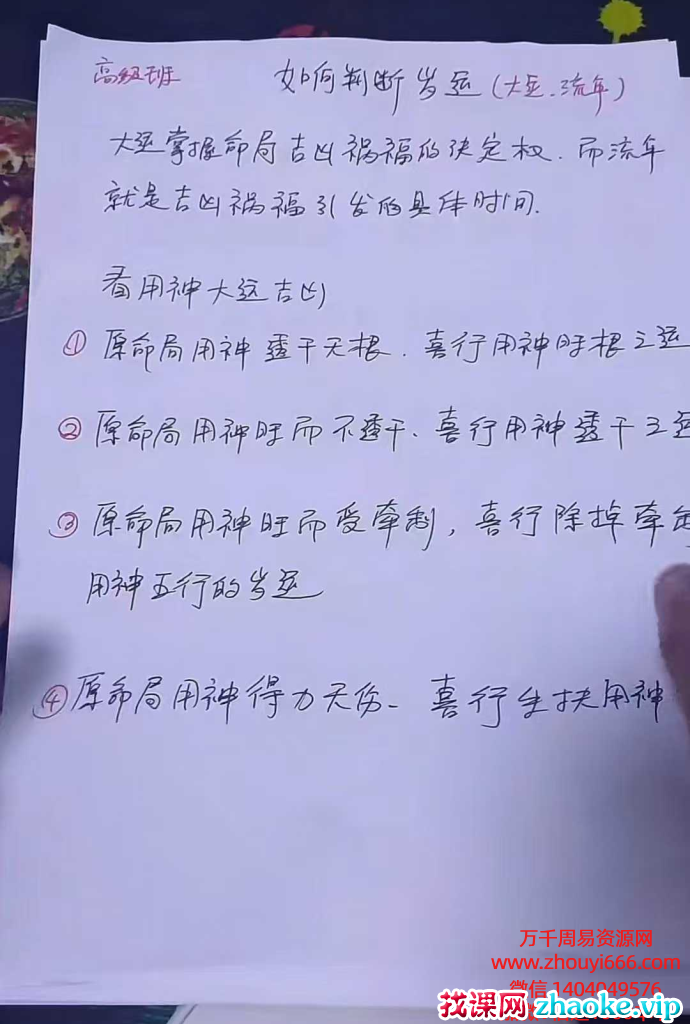 高级班
如何判断岁运(大运.流年)
大运掌握命局吉凶祸福的决定权.而流年
就是吉凶祸福引发的具体时间.
看用神大运吉凶
①原命局用神透干无根.喜行用神旺根之运
②原命局用神旺而不透干、喜行用神透干之运
③原命局用神旺而受牵制,喜行除掉牵制
用神五行的岁运
④原命局用神得力无伤-喜行生扶用神
万千周易资源网
www.zhouyi666.com
微信 1404049576
找课网zhaoke.vip